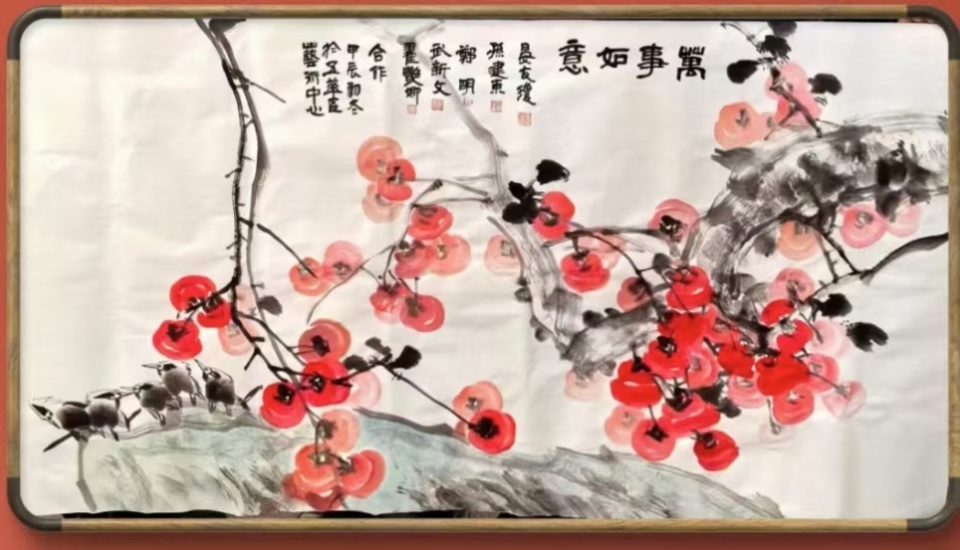 萬事如意
吴友瓊
孫建東
鄭明
武新文
翟艷卿
合作
甲辰初冬
於五華區
藝術中心